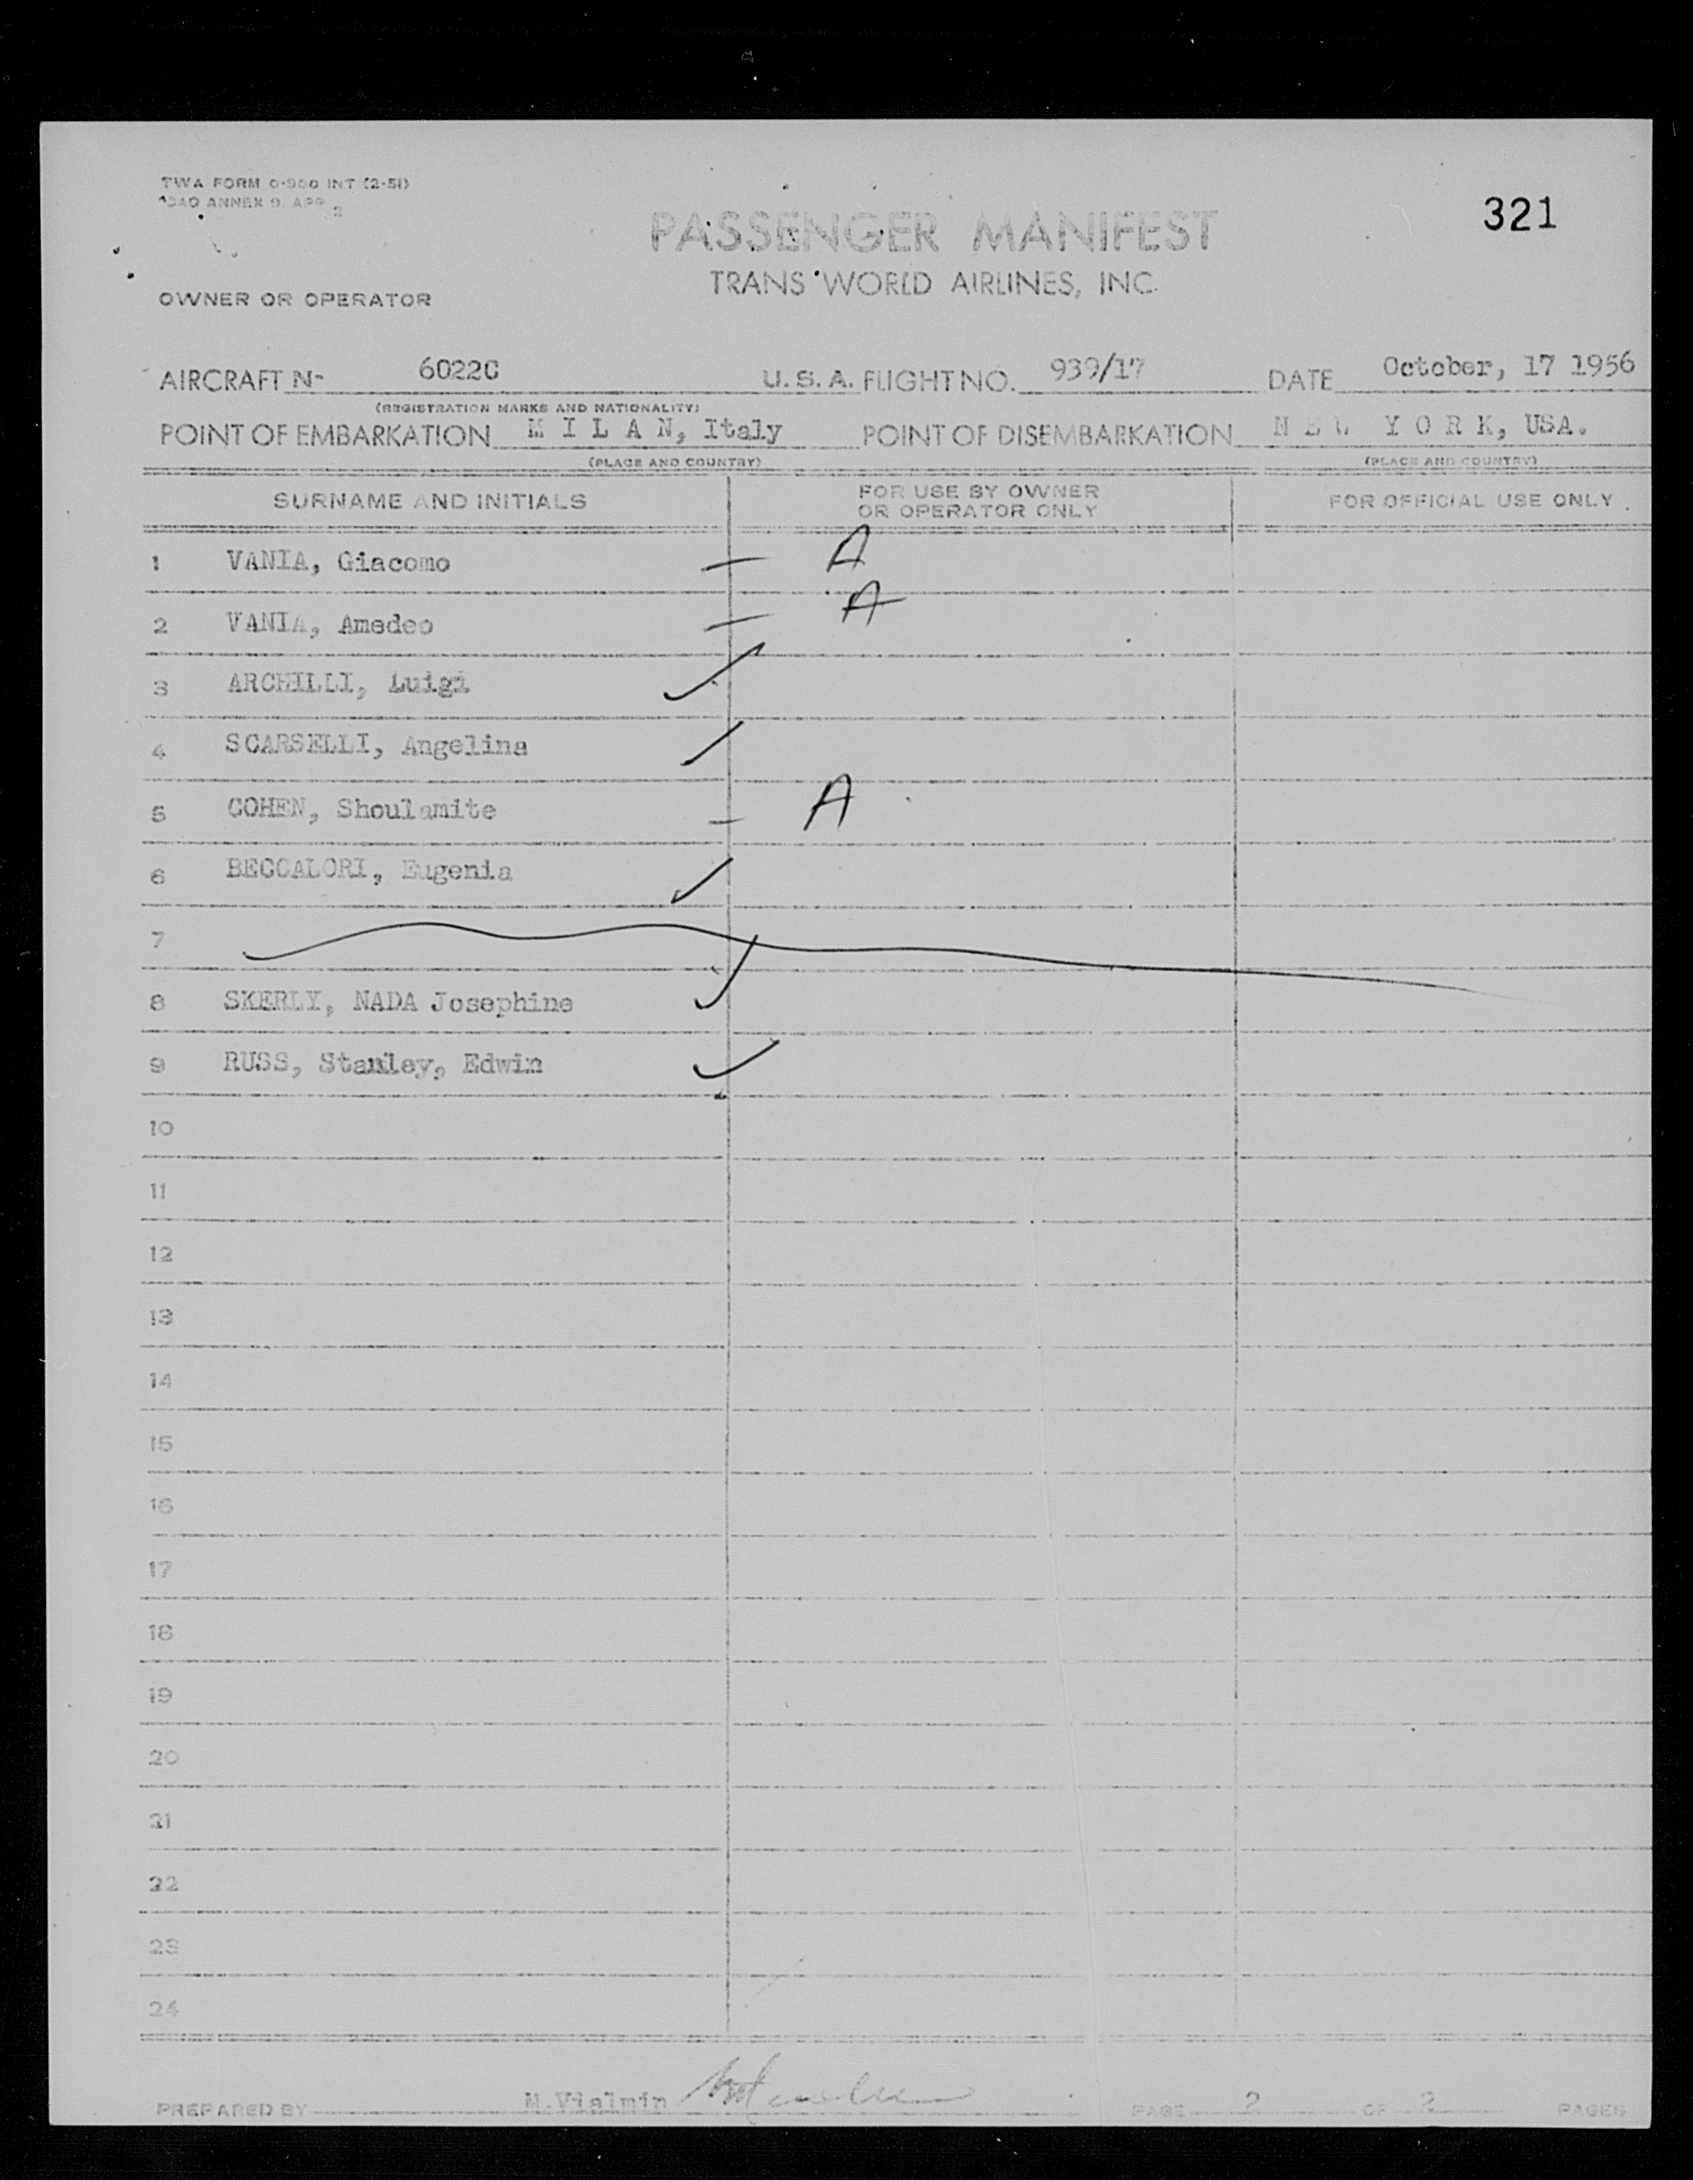 TWA FORM 0-900 INT (2-51)
ICAO ANNEX 9, APP. 2
321
PASSENGER MANIFEST
TRANS WORLD AIRLINES, INC.
OWNER OR OPERATOR
AIRCRAFT Nº 6022C U. S. A. FLIGHT NO. 939/17 DATE October, 17 1956
(REGISTRATION MARKS AND NATIONALITY)
POINT OF EMBARKATION M I L A N, Italy POINT OF DISEMBARKATION N E W Y O R K, USA.
(PLACE AND COUNTRY) (PLACE AND COUNTRY)
SURNAME AND INITIALS FOR USE BY OWNER OR OPERATOR ONLY FOR OFFICIAL USE ONLY
1 VANIA, Giacomo — A
2 VANIA, Amedeo — A
3 ARCHILLI, Luigi ✓
4 SCARSELLI, Angelina ✓
5 COHEN, Shoulamite — A
6 BECCALORI, Eugenia ✓
7
8 SKERLY, NADA Josephine ✓
9 RUSS, Stanley, Edwin ✓
10
11
12
13
14
15
16
17
18
19
20
21
22
23
24
PREPARED BY M.Vialmin PAGE 2 OF 2 PAGES